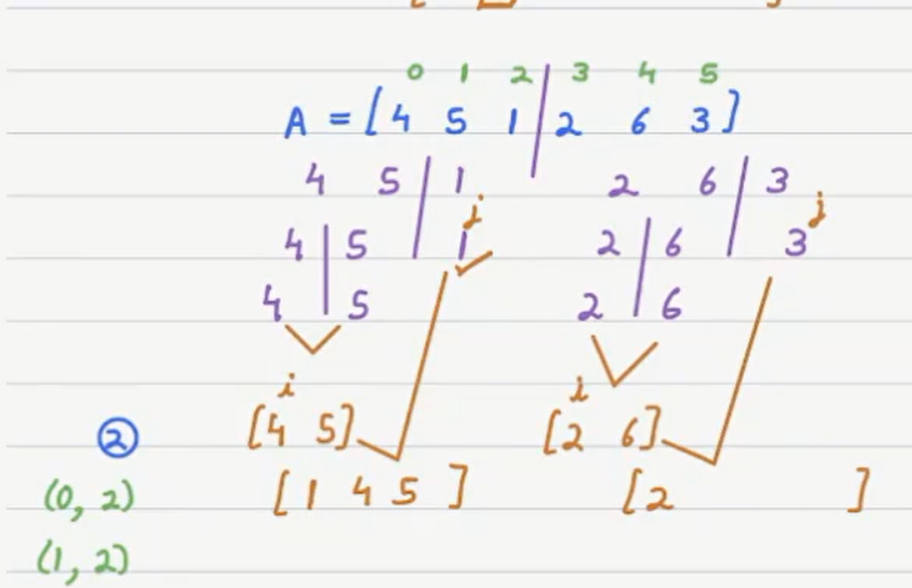 0 1 2 3 4 5
A = [4 5 1 | 2 6 3]
4 5 | 1 2 6 | 3
j j
4 | 5 1 2 | 6 3
4 5 2 6
i i
[4 5] [2 6]
②
[1 4 5] [2 ]
(0, 2)
(1, 2)